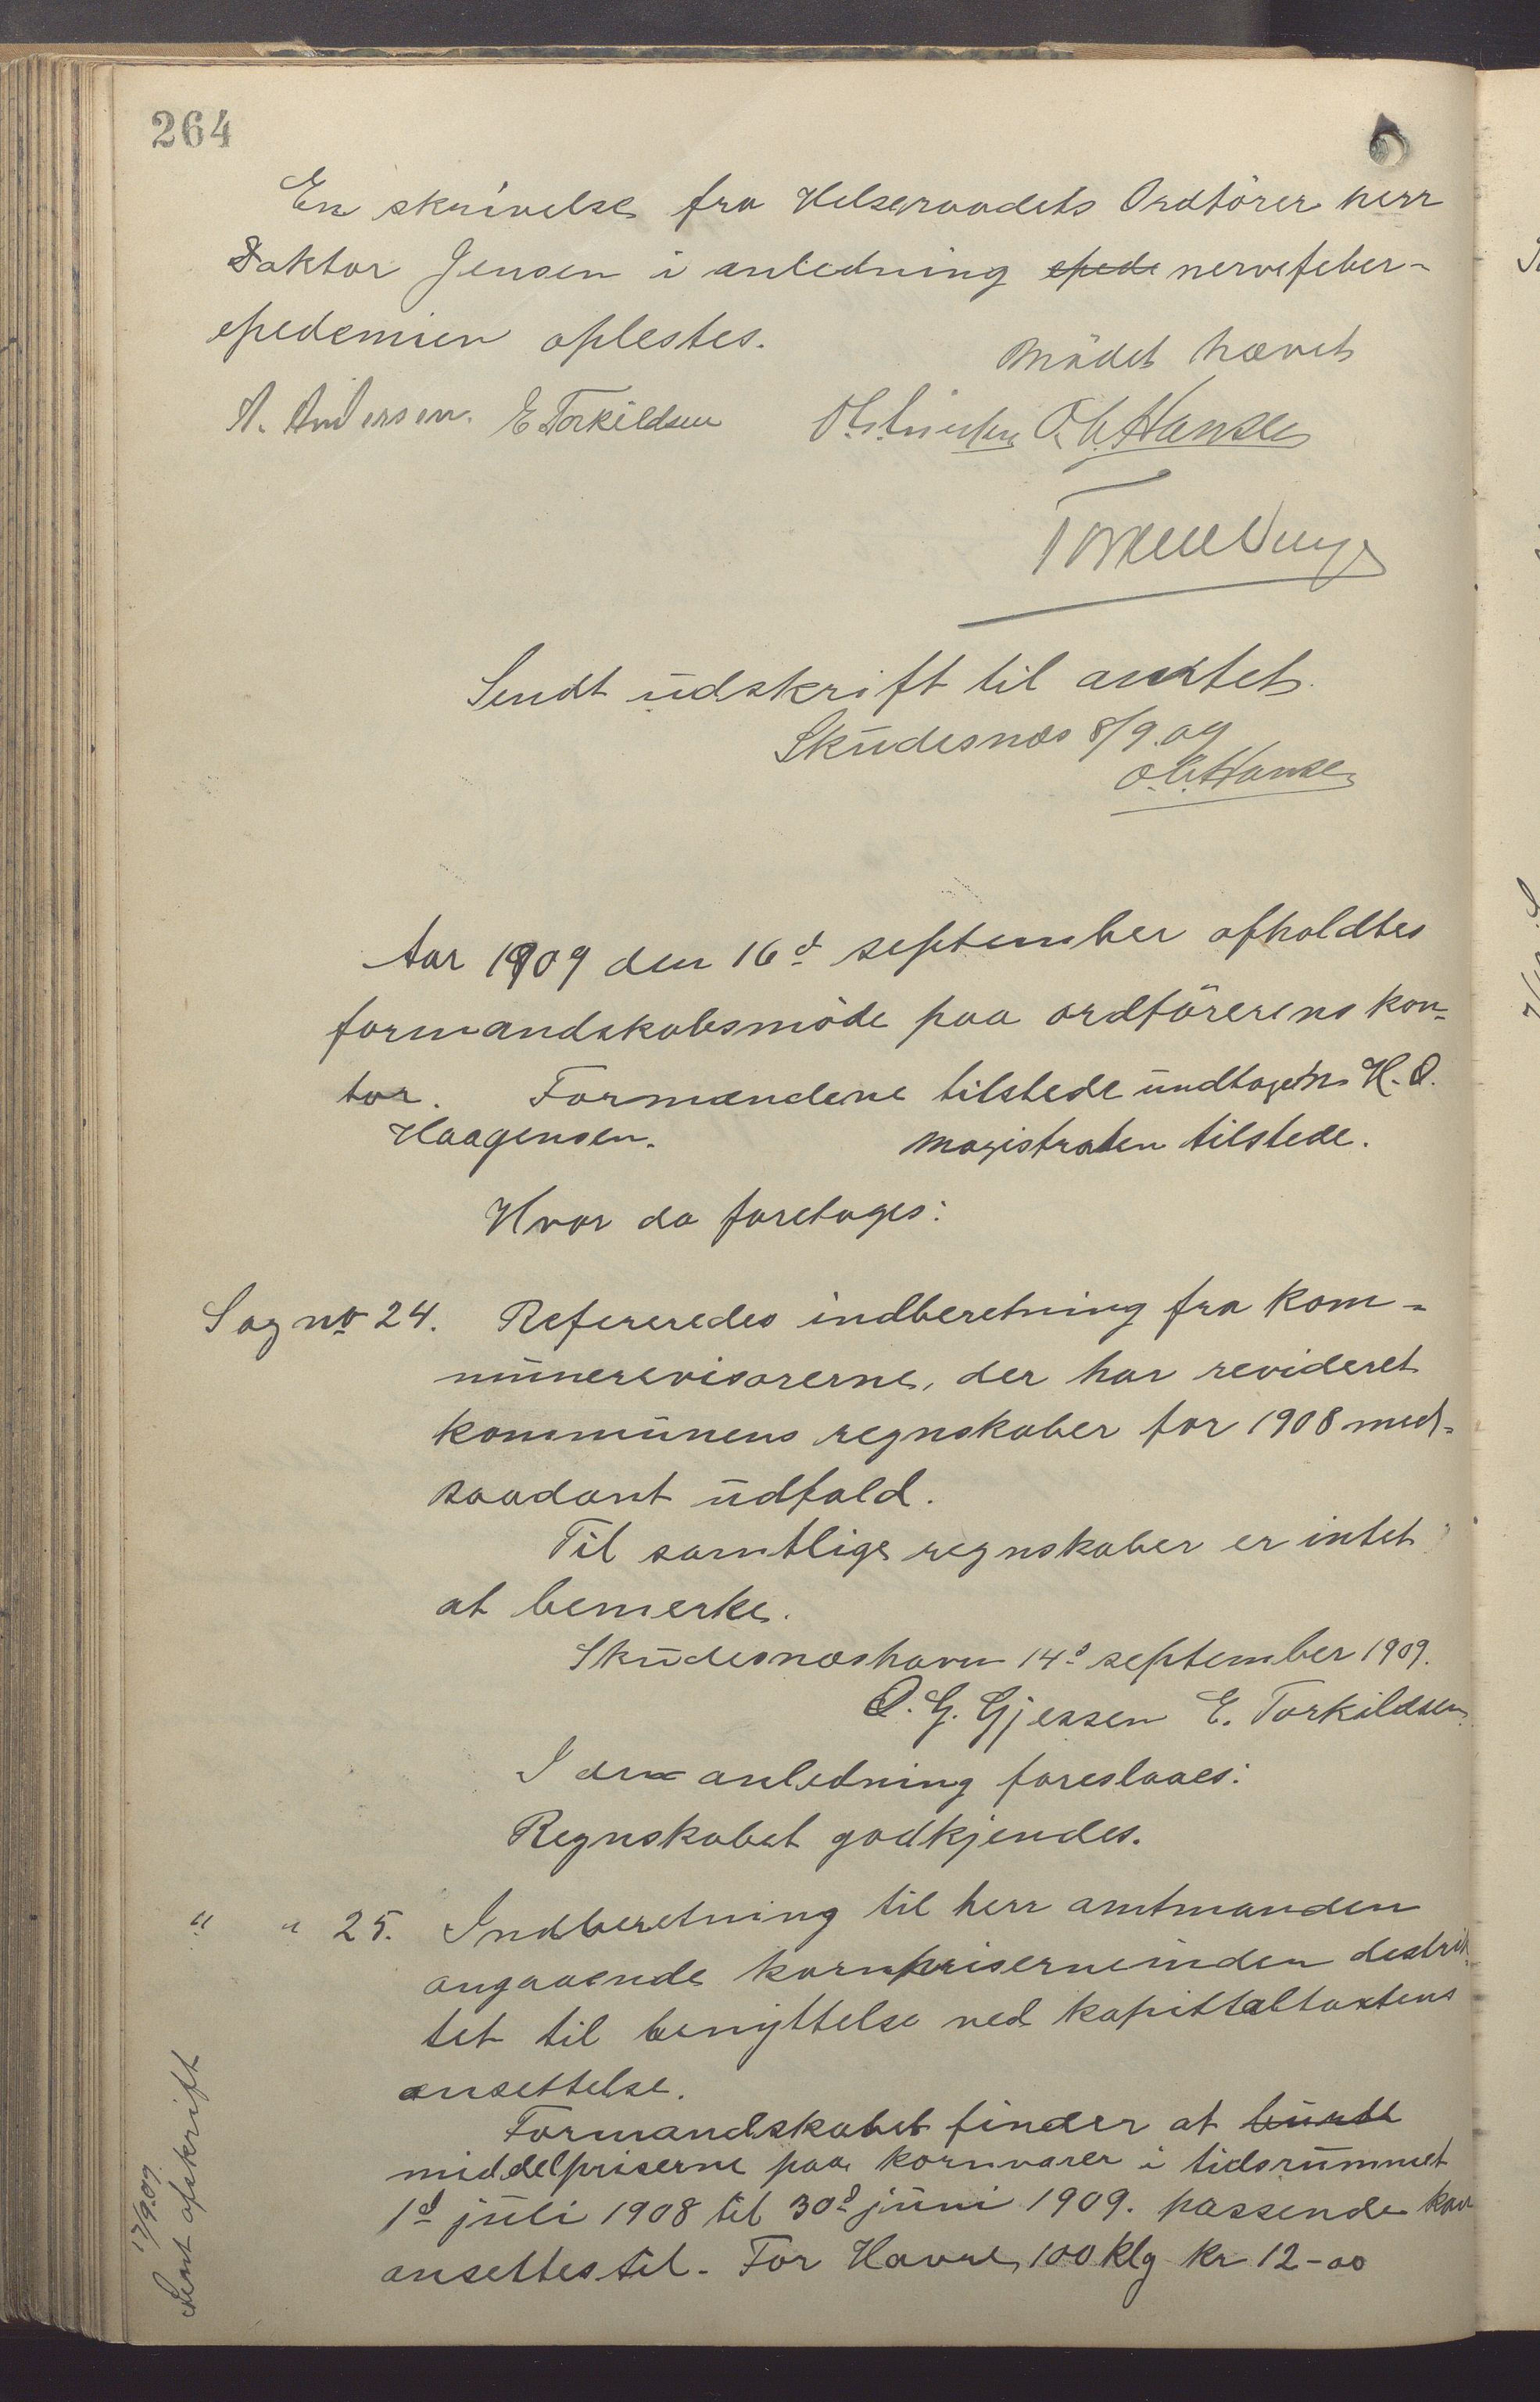 264
En skrivelse fra Helseraadets Ordförer herr
Doktor Jensen i anledning epede nervefeber-
epedemien oplestes.
Mödet hævet
A. Andersen. E Torkildsen O. C. Hansen
Sendt udskrift til amtet.
Skudesnæs 8/9.09
O. C. Hansen
Aar 1909 den 16d september afholdtes
formandskabsmöde paa ordförerens kon-
tor. Formændene tilstede undtagen H. O.
Haagensen. Magistraten tilstede.
Hvor da foretoges:
Sag no 24. Refereredes indberetning fra kom-
munerevisorerne, der har revideret
kommunens regnskaber for 1908 med-
saadant udfald.
Til samtlige regnskaber er intet
at bemerke.
Skudesneshavn 14d september 1909.
O. G. Gjessen E. Torkildsen
I den anledning foreslaaes:
Regnskabet godkjendes.
" " 25. Indberetning til herr amtmanden
angaaende kornpriserne inden destrik
tet til benyttelse ved kapittaltaxtens
ansettelse.
Formandskabet finder at burde
middelpriserne paa kornvarer i tidsrummet
1d juli 1908 til 30d juni 1909. passende kan
ansettes til. For Havre, 100 klg kr 12-00
Sent afskrift
17/9.09